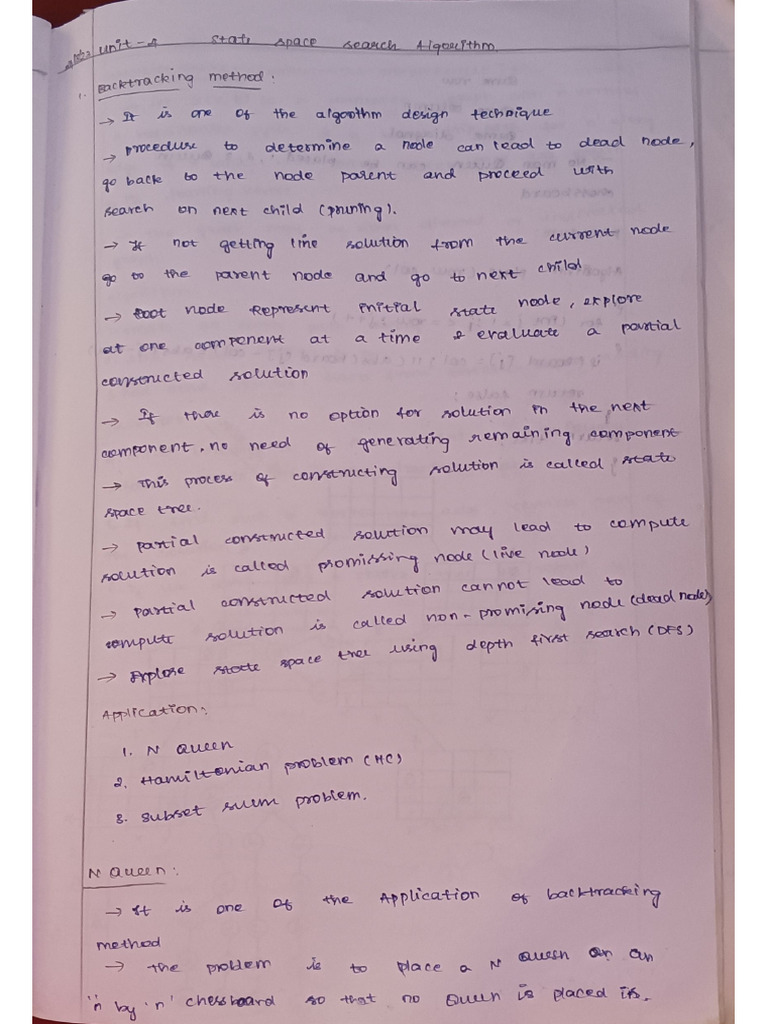 unit - 4 State space search Algorithm
1. Backtracking method:
→ It is one of the algoothm design technique
→ procedure to determine a node can lead to dead node,
go back to the node parent and proceed with
search on next child (pruning).
→ If not getting line solution from the current node
go to the parent node and go to next child
→ Root node Represent initial state node, explore
at one component at a time & evaluate a partial
constructed solution
→ If there is no option for solution in the next
component, no need of generating remaining component
→ This process of constructing solution is called state
space tree.
→ Partial constructed solution may lead to compute
solution is called promissing node (live node)
→ Partial constructed solution cannot lead to
compute solution is called non-promising node (dead node)
→ Explore state space tree using depth first search (DFS)
Application:
1. N Queen
2. Hamiltonian problem (HC)
3. Subset sum problem.
N Queen:
→ It is one of the Application of backtracking
method
→ the problem is to place a N Queen on an
'n by 'n' chessboard so that no Queen is placed in.